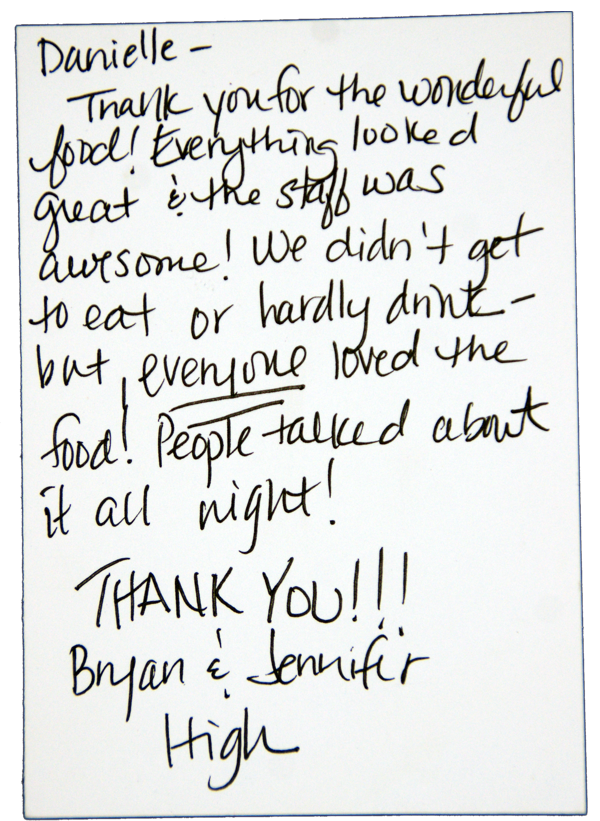 Danielle -
Thank you for the wonderful
food! Everything looked
great & the staff was
awesome! We didn't get
to eat or hardly drink -
but, everyone loved the
food! People talked about
it all night!
THANK YOU!!!
Bryan & Jennifer
High